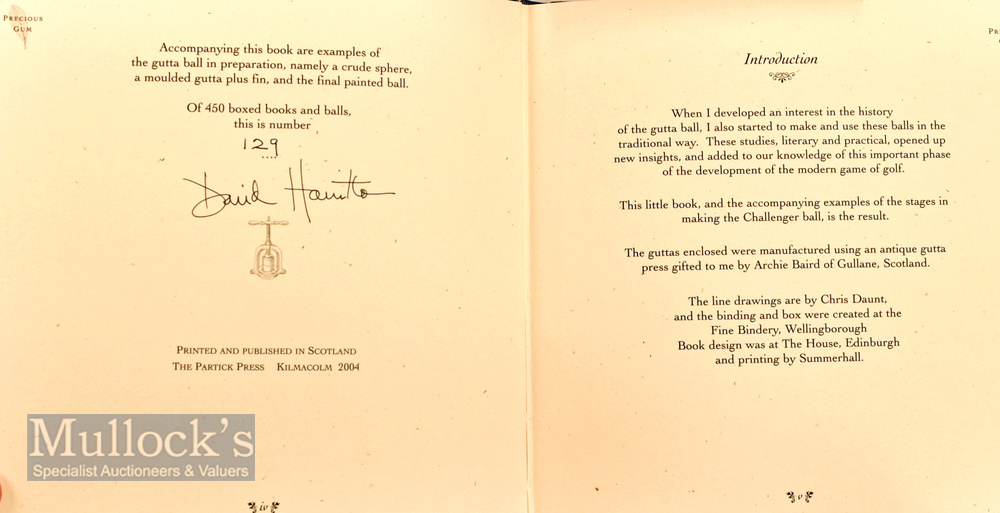 PRECIOUS
GUM
Accompanying this book are examples of
the gutta ball in preparation, namely a crude sphere,
a moulded gutta plus fin, and the final painted ball.
Of 450 boxed books and balls,
this is number
129
David Hamilton
PRINTED AND PUBLISHED IN SCOTLAND
THE PARTICK PRESS KILMACOLM 2004
Mullock's
Specialist Auctioneers & Valuers
iv
PR
Introduction
When I developed an interest in the history
of the gutta ball, I also started to make and use these balls in the
traditional way. These studies, literary and practical, opened up
new insights, and added to our knowledge of this important phase
of the development of the modern game of golf.
This little book, and the accompanying examples of the stages in
making the Challenger ball, is the result.
The guttas enclosed were manufactured using an antique gutta
press gifted to me by Archie Baird of Gullane, Scotland.
The line drawings are by Chris Daunt,
and the binding and box were created at the
Fine Bindery, Wellingborough
Book design was at The House, Edinburgh
and printing by Summerhall.
v